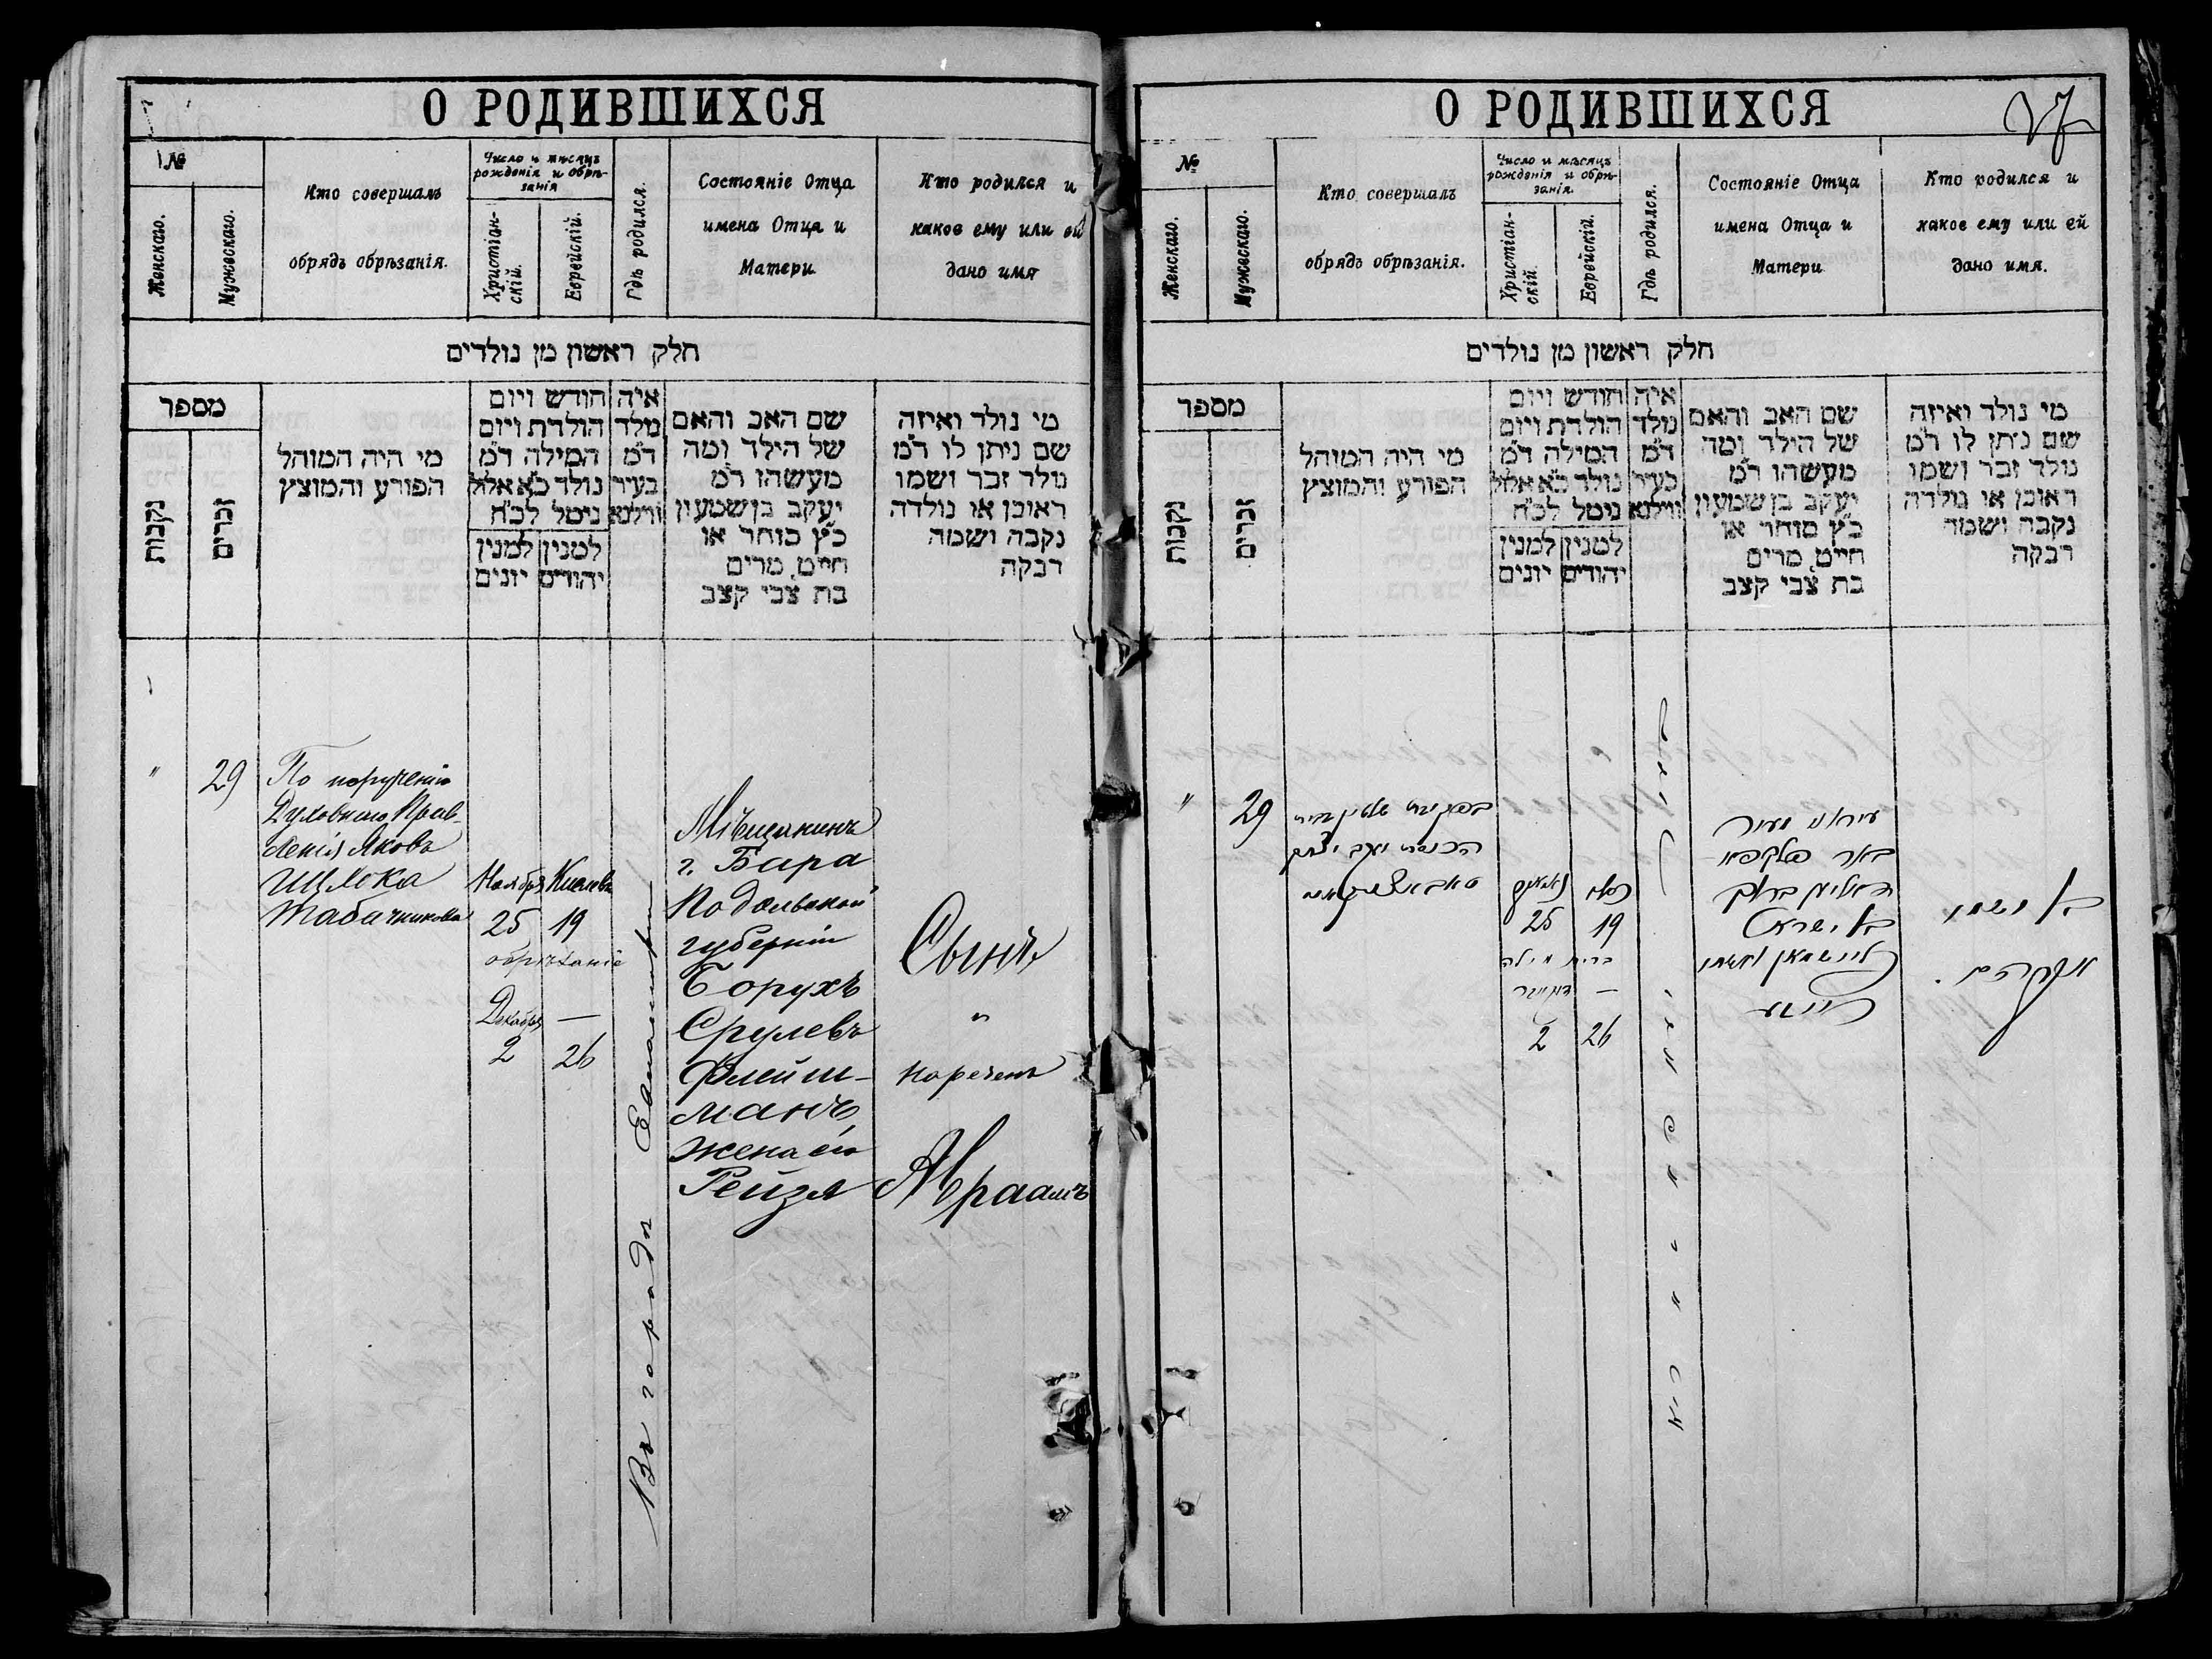 О РОДИВШИХСЯ
№
Женскаго.
Мужескаго.
Кто совершалъ
обрядъ обрѣзанія.
Число и мѣсяцъ
рожденія и обрѣ-
занія
Христіан-
скій.
Еврейскій.
Гдѣ родился.
Состояніе Отца
имена Отца и
Матери
Кто родился и
какое ему или ей
дано имя
חלק ראשון מן נולדים
מספר
נקבות
זכרים
מי היה המוהל
הפורע והמוצץ
חודש ויום
הולדת ויום
המילה ד״מ
נולד כ״א אלול
נימל לכ״ח
למנין למנין
יהודים יונים
איה
נולד
ד״מ
בעיר
ווילנא
שם האב והאם
של הילד ומה
מעשהו ד״מ
יעקב בן שמעון
כ״ץ סוחר או
חייט, מרים
בת צבי קצב
מי נולד ואיזה
שם ניתן לו ד״מ
נולד זכר ושמו
ראובן או נולדה
נקבה ושמה
רבקה
"
29
По порученію
Духовнаго Прав-
ленія Яковъ
Ицлока
Табачниковъ
Ноября Кислевъ
25 19
обрѣзаніе
Декабря —
2 26
Въ городѣ
Мѣщанинъ
г. Бара
Подольской
губерніи
Борухъ
Срулевъ
Флейш-
манъ,
жена его
Рейзя
Сынъ
"
нареченъ
Абраамъ
О РОДИВШИХСЯ
27
№
Женскаго.
Мужескаго.
Кто совершалъ
обрядъ обрѣзанія.
Число и мѣсяцъ
рожденія и обрѣ-
занія.
Христіан-
скій
Еврейскій.
Гдѣ родился.
Состояніе Отца
имена Отца и
Матери
Кто родился и
какое ему или ей
дано имя.
חלק ראשון מן נולדים
מספר
נקבות
זכרים
מי היה המוהל
הפורע והמוצץ
חודש ויום
הולדת ויום
המילה ד״מ
נולד כ״א אלול
נימל לכ״ח
למנין למנין
יהודים יונים
איה
נולד
ד״מ
בעיר
ווילנא
שם האב והאם
של הילד ומה
מעשהו ד״מ
יעקב בן שמעון
כ״ץ סוחר או
חייט, מרים
בת צבי קצב
מי נולד ואיזה
שם ניתן לו ד״מ
נולד זכר ושמו
ראובן או נולדה
נקבה ושמה
רבקה
"
29
25 19
ברית מילה
—
2 26
בן ושמו
אברהם.